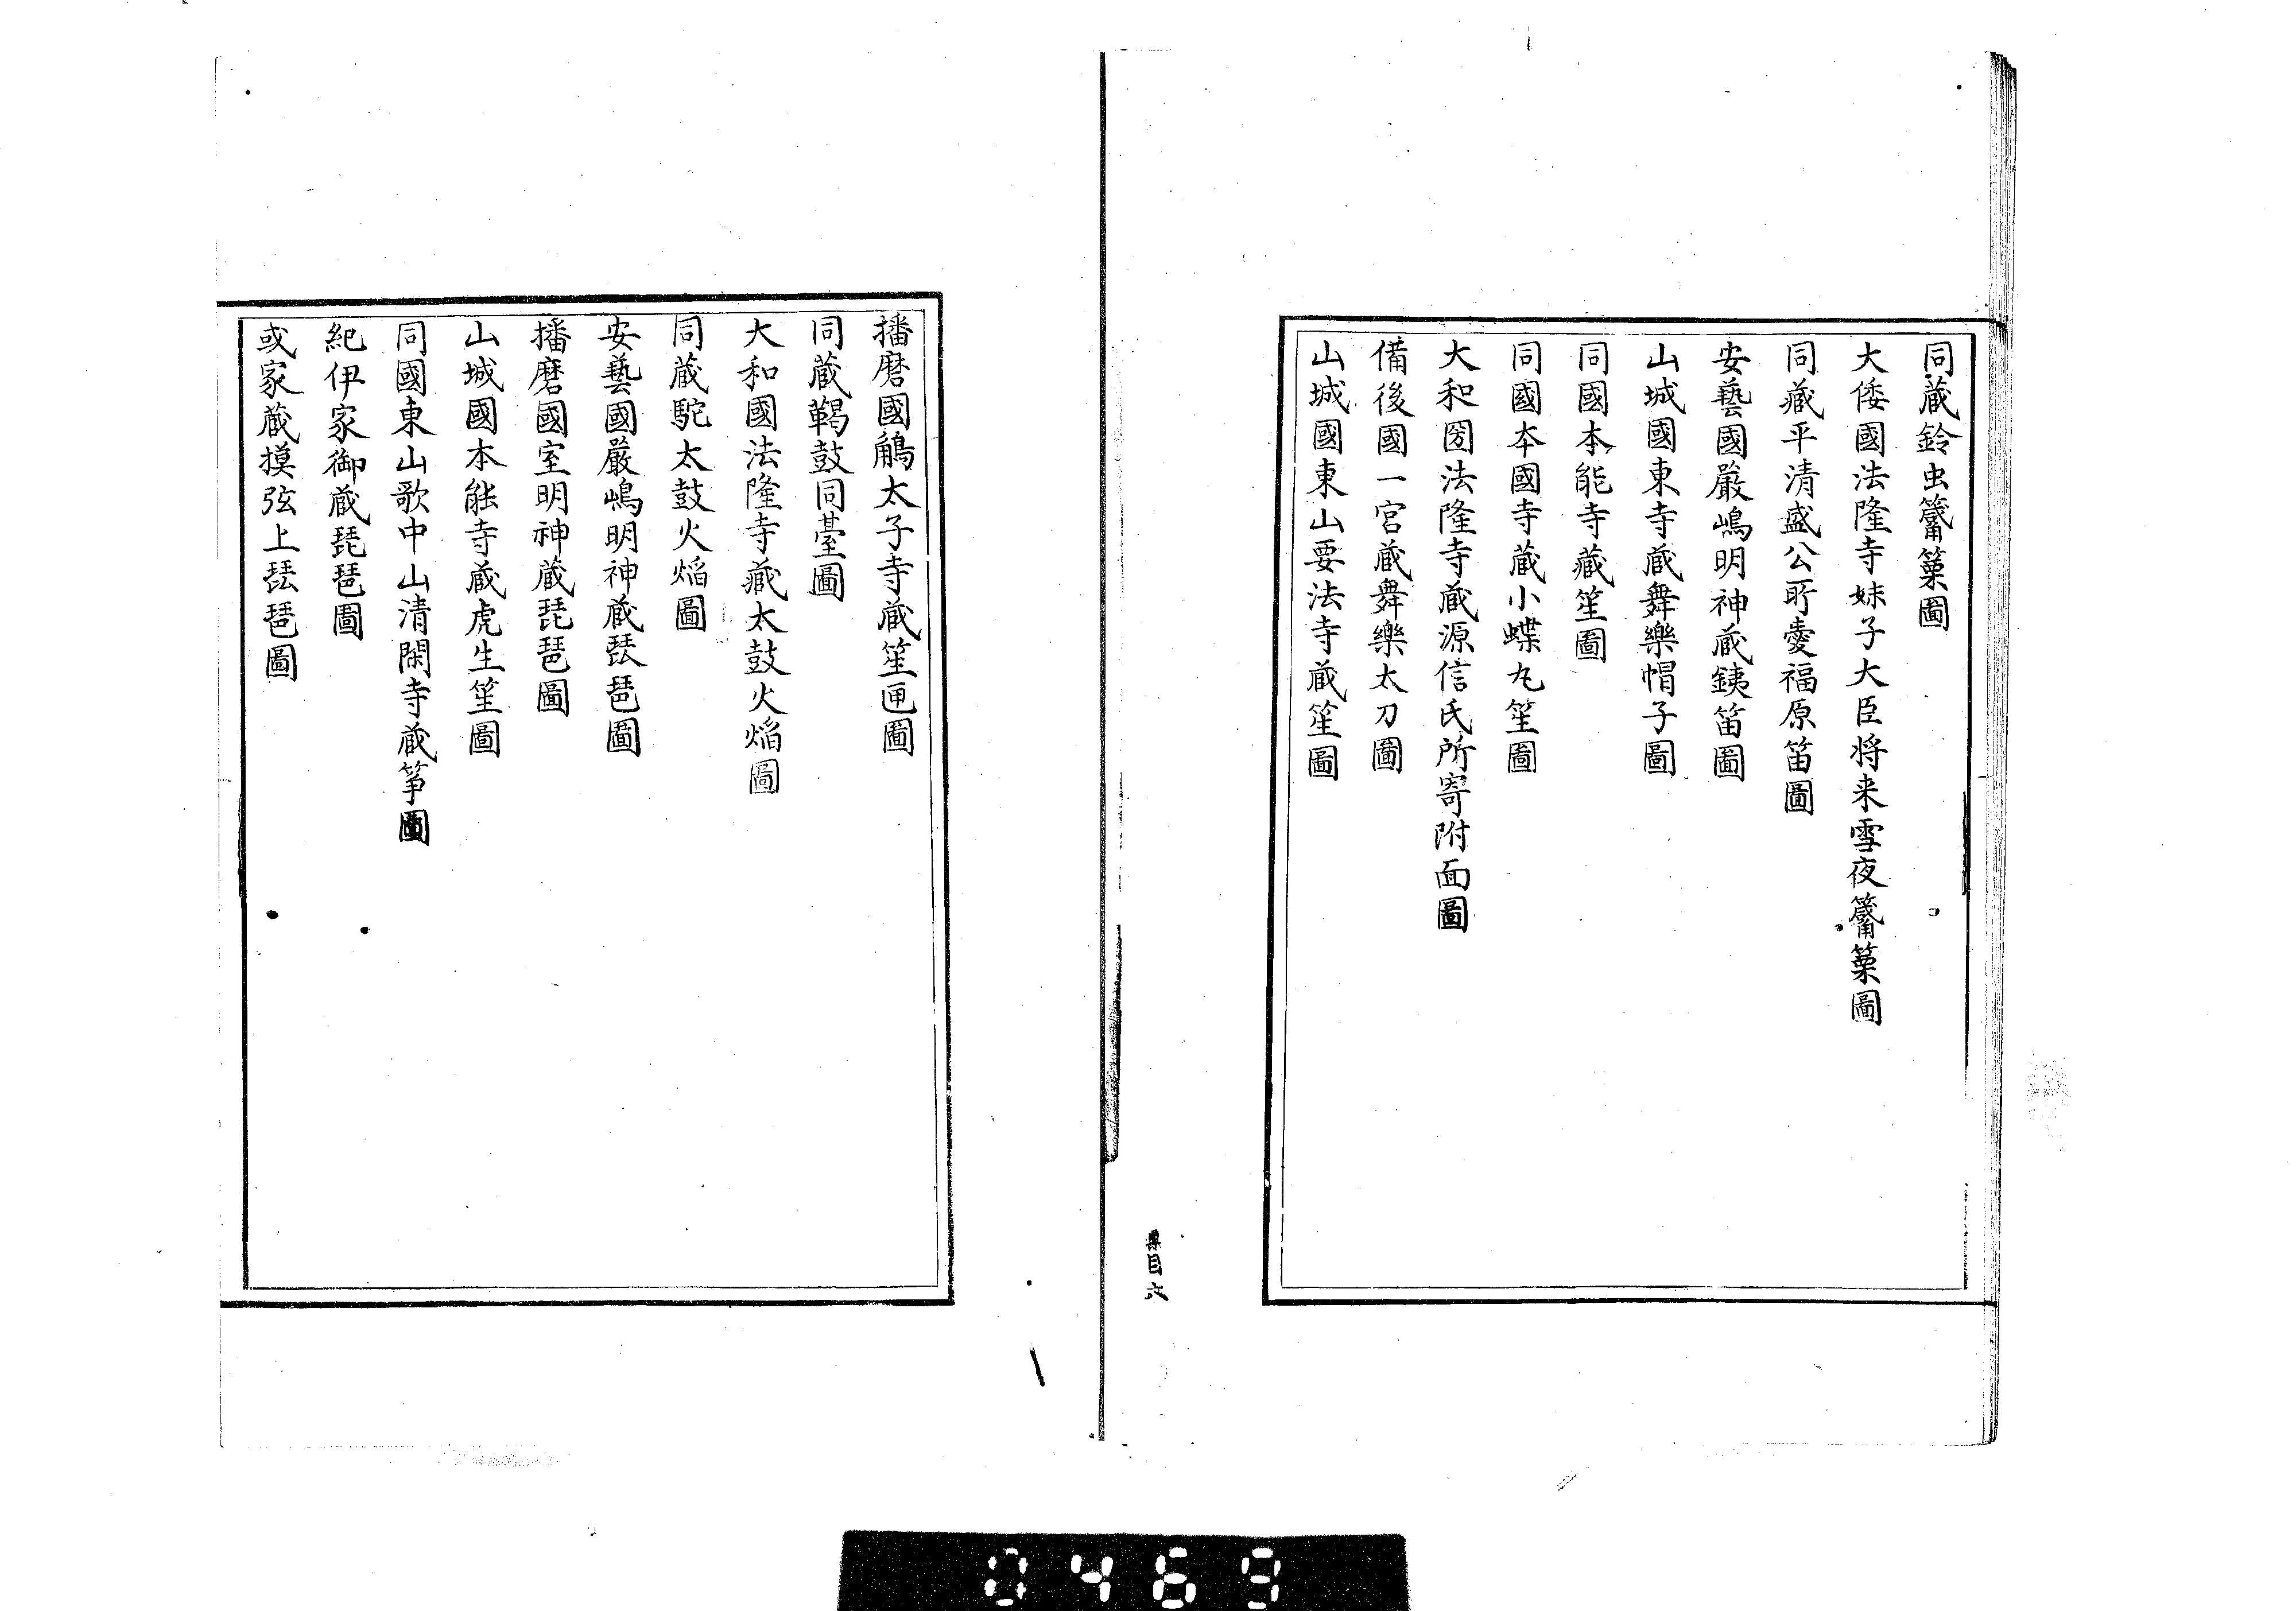 同蔵鈴虫篳篥圖
大倭國法隆寺妹子大臣将来雪夜篳篥圖
同蔵平清盛公所愛福原笛圖
安藝國嚴嶋明神蔵銕笛圖
山城國東寺蔵舞樂帽子圖
同國本能寺蔵笙圖
同國本國寺蔵小蝶丸笙圖
大和國法隆寺蔵源信氏所寄附面圖
備後國一宮蔵舞樂太刀圖
山城國東山要法寺蔵笙圖
樂目六
播磨國鵤太子寺蔵笙匣圖
同蔵鞨鼓同臺圖
大和國法隆寺蔵太鼓火焔圖
同蔵駝太鼓火焔圖
安藝國嚴嶋明神蔵琵琶圖
播磨國室明神蔵琵琶圖
山城國本能寺蔵虎生笙圖
同國東山歌中山清閑寺蔵箏圖
紀伊家御蔵琵琶圖
或家蔵摸弦上琵琶圖
0469